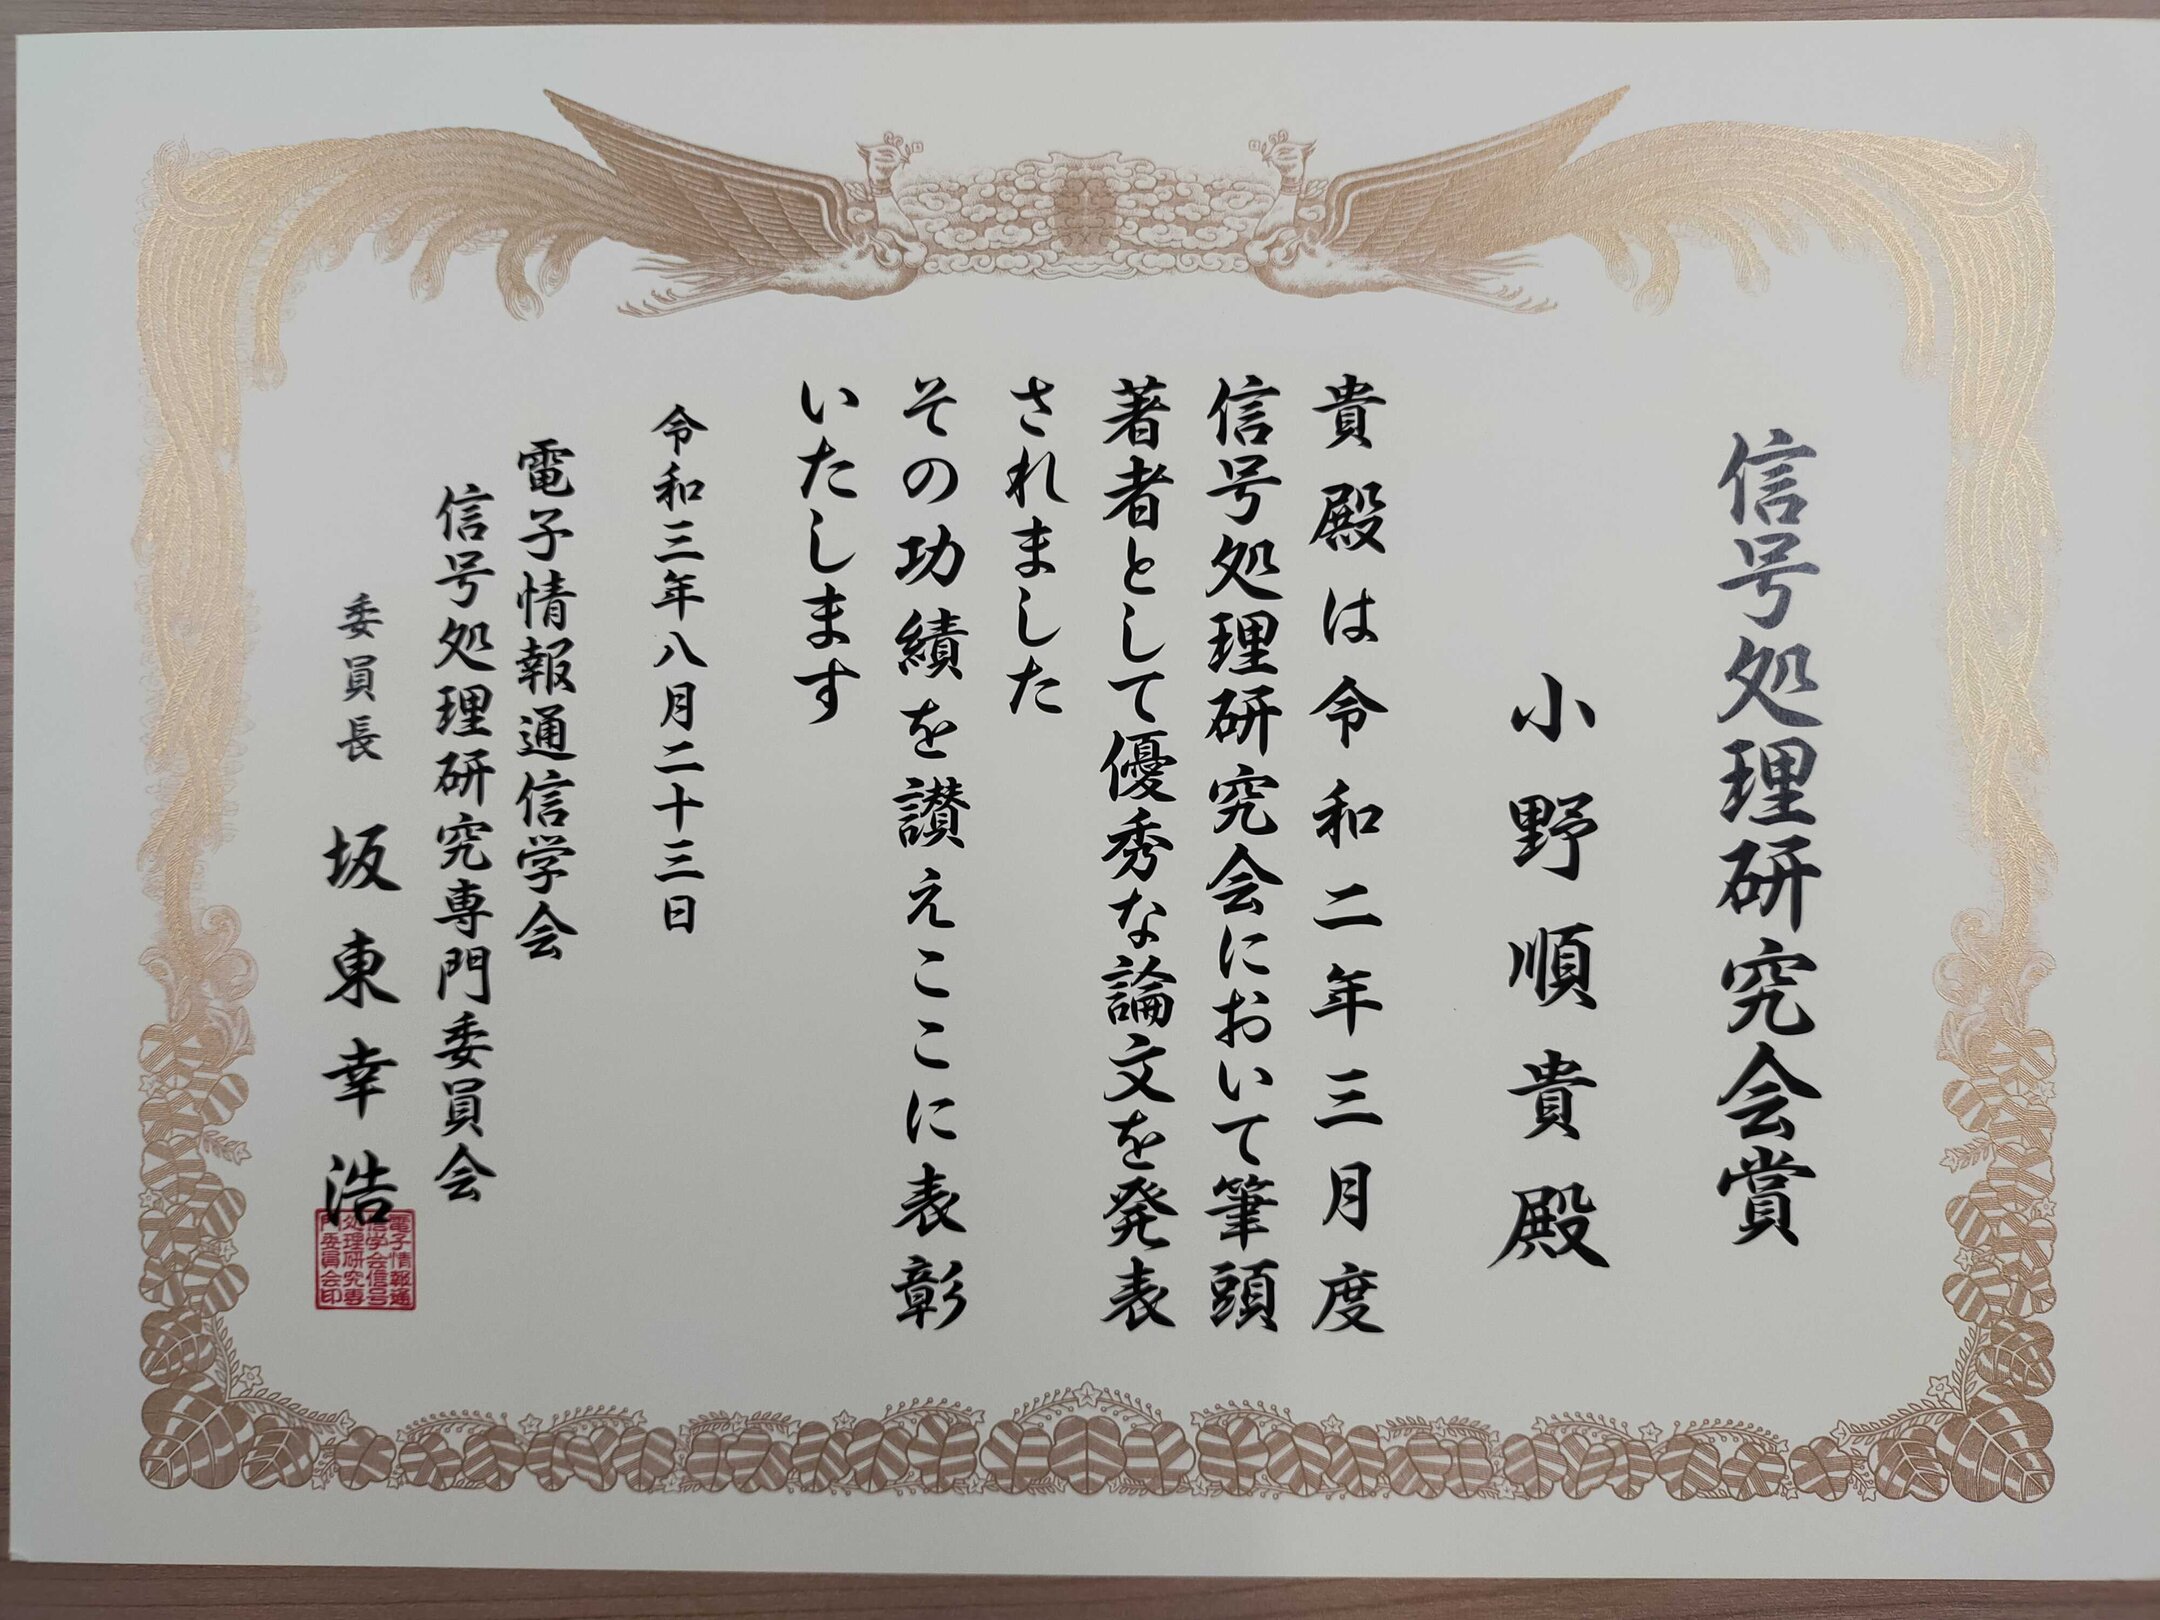 信号処理研究会賞
小野順貴殿
貴殿は令和二年三月度
信号処理研究会において筆頭
著者として優秀な論文を発表
されました
その功績を讃えここに表彰
いたします
令和三年八月二十三日
電子情報通信学会
信号処理研究専門委員会
委員長 坂東幸浩
電子情報通
信学会信号
処理研究専
門委員会印